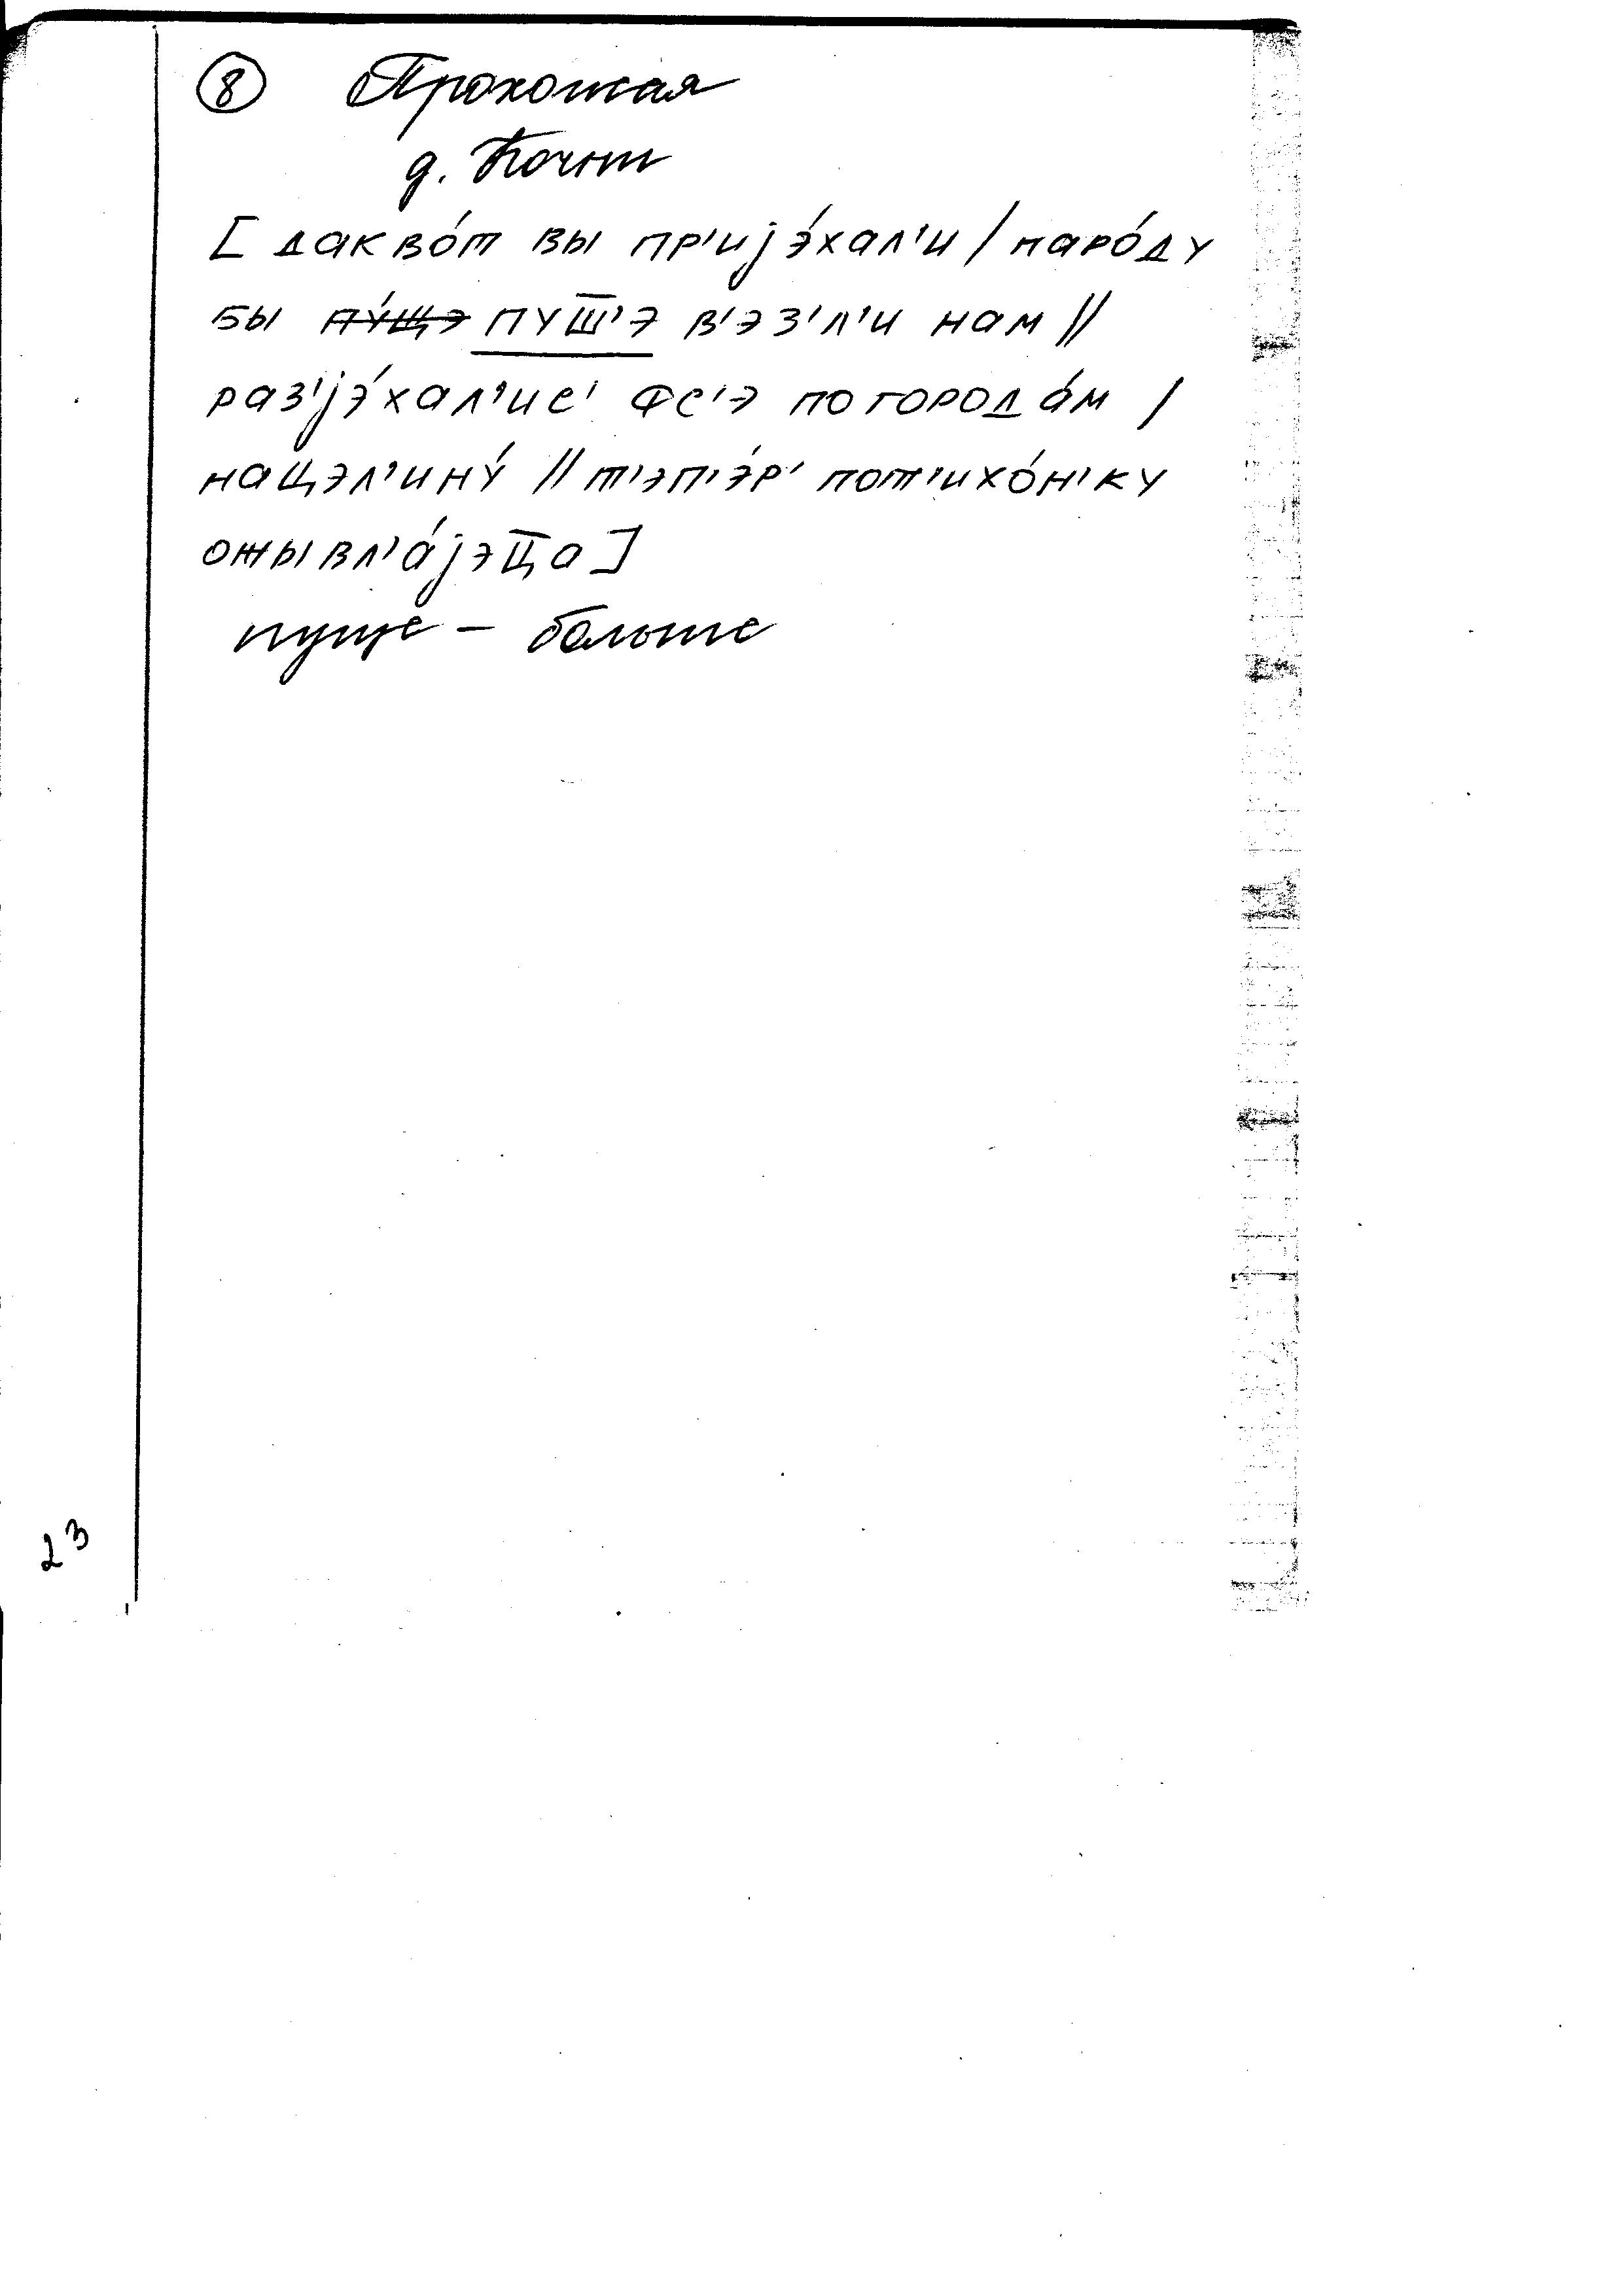 ⑧ Прохожая
д. Кочт
[ даквóт вы пр'иjэ́хал'и / нарóду
бы пӯщэ пуш̅'э в'эз'л'и нам //
раз'jэ́хал'ис' фс'э погородáм /
нацэл'инý // т'эп'э́р' пот'ихóн'ку
ожывл'ájэц̅а ]
пуще – больше
23